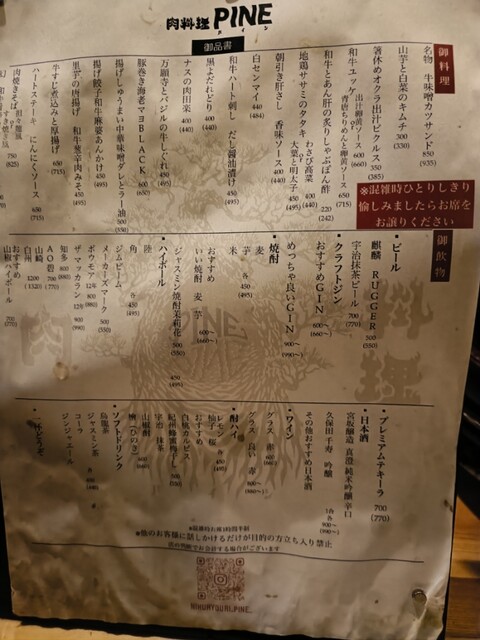 肉料理 PINE
パイン
御品書
御料理
名物 牛味噌カツサンド 850 (935)
山芋と白菜のキムチ 300 (330)
箸休めオクラ出汁ピクルス 350 (385)
和牛ユッケ 出汁卵黄ソース 青唐ちりめんと卵黄ソース 650 (715)
和牛とあん肝の炙りしゃぶぽん酢 220 (242)
地鶏ササミのタタキ わさび高菜 400 (440) 大葉と明太子 450 (495)
朝引き肝さし 香味ソース 400 (440)
白センマイ 440 (484)
和牛ハート刺し だし醤油漬け 450 (495)
黒よだれどり 400 (440)
ナスの肉田楽 400 (440)
万願寺とバジルの牛しぐれ 450 (495)
豚巻き海老マヨBLACK 600 (660)
揚げしゅうまい中華味噌ダレとラー油 500 (550)
揚げ餃子和牛麻婆あんかけ 450 (495)
里芋の唐揚げ 和牛葱辛肉みそ 450 (495)
牛すじ煮込みと厚揚げ 650 (715)
ハートステーキ にんにくソース 650 (715)
肉焼きそば 750 (825)
※混雑時ひとりしきり
愉しみましたらお席を
お譲りください
御飲物
・ビール
麒麟 RUGGER 500 (550)
宇治抹茶ビール 700 (770)
・クラフトジン
おすすめGIN 600〜 (660〜)
めっちゃ良いGIN 900〜 (990〜)
・焼酎
麦
芋 各 450 (495)
米
おすすめ
いい焼酎 麦 芋 600〜 (660〜)
ジャスミン焼酎茉莉花 500 (550)
・ハイボール
陸 450 (495)
角 各 450 (495)
ジムビーム
メーカーズマーク 500 (550)
ボウモア 12年 800 (880)
ザマッカラン 12年 900 (990)
知多 800 (880)
AO碧 700 (770)
山崎 1200 (1320)
白州
おすすめ
山椒ハイボール 700 (770)
・プレミアムテキーラ 700 (770)
・日本酒
宮坂醸造 真澄 純米吟醸 辛口
久保田 千寿 吟醸
その他おすすめ日本酒
1合 各 900〜 (990〜)
・ワイン
グラス 赤 600 (660)
グラス 良い 赤 800〜 (880〜)
・酎ハイ
レモン
柚子 桜 各 450 (495)
おすすめ
白桃カルピス
紀州蜂蜜梅干し
宇治 抹茶
山椒酎
檜(ひのき)
・ソフトドリンク
烏龍茶
ジャスミン茶 各 400 (440)
コーラ
ジンジャエール
※混雑時お席1時間半制
※他のお客様に話しかけるだけが目的の方立ち入り禁止
店の判断でお会計する場合がございます
NIKURYOURI.PINE